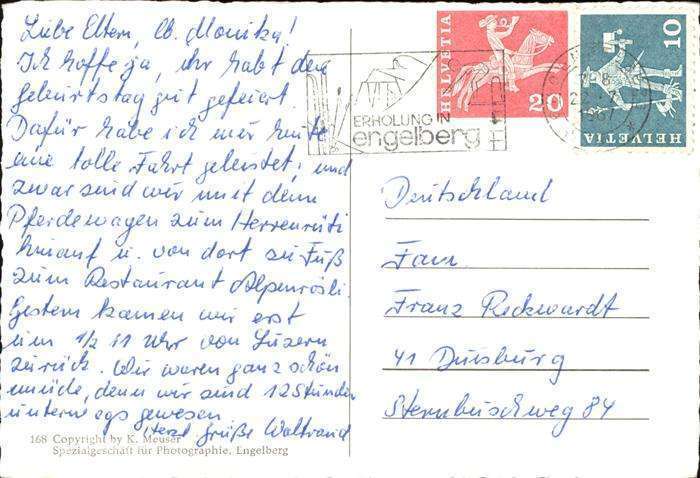 Liebe Eltern, lb. Monika!
Ich hoffe ja, ihr habt den
Geburtstag gut gefeiert.
Dafür habe ich mir heute
eine tolle Fahrt geleistet, und
zwar sind wir mit dem
Pferdewagen zum Herrenrüti
hinauf u. von dort zu Fuß
zum Restaurant Alpenrösli.
Gestern kamen wir erst
um 1/2 11 Uhr von Luzern
zurück. Wir waren ganz schön
müde, denn wir sind 12 Stunden
unterwegs gewesen.
Herzl. Grüße Waltraud
168 Copyright by K. Meuser
Spezialgeschäft für Photographie, Engelberg
ERHOLUNG IN
engelberg
HELVETIA
20
10
HELVETIA
Deutschland
Fam.
Franz Reckwardt
41 Duisburg
Sternbuschweg 84